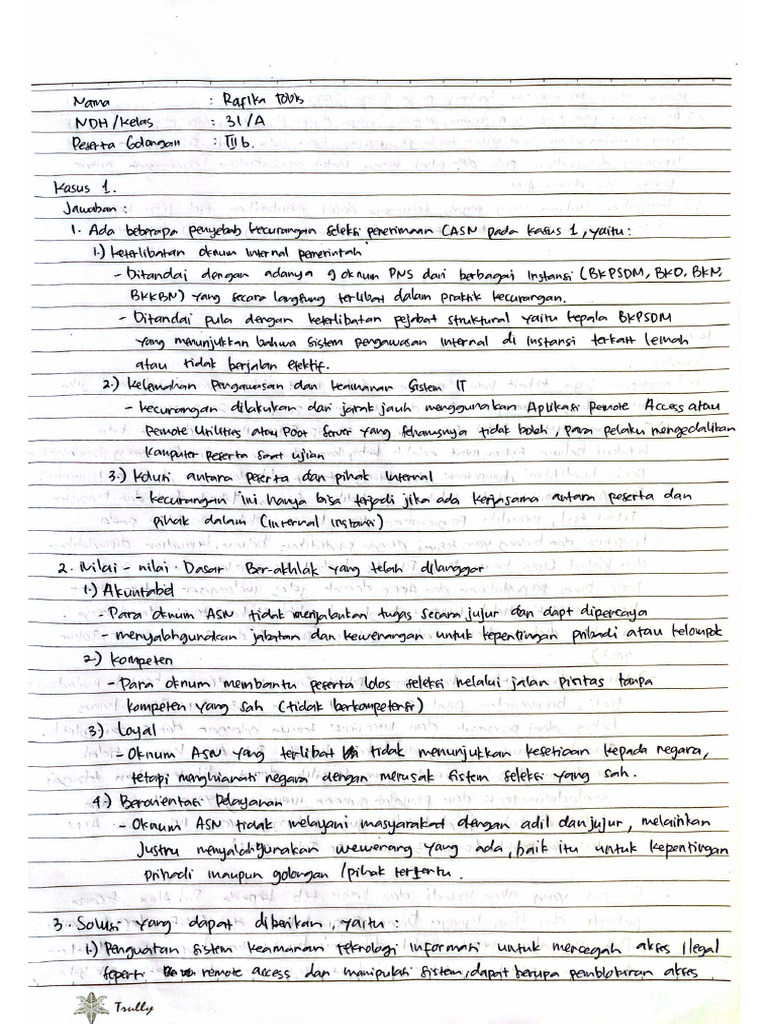 Nama : Rafika
NDH/Kelas : 31/A
Peserta Golongan : III b.
Kasus 1.
Jawaban :
1. Ada beberapa penyebab kecurangan seleksi penerimaan CASN pada kasus 1, yaitu:
1.) keterlibatan oknum internal pemerintah
- Ditandai dengan adanya 9 oknum PNS dari berbagai instansi (BKPSDM, BKD, BKN,
BKKBN) yang secara langsung terlibat dalam praktik kecurangan.
- Ditandai pula dengan keterlibatan pejabat struktural yaitu kepala BKPSDM
yang menunjukkan bahwa sistem pengawasan internal di instansi terkait lemah
atau tidak berjalan efektif.
2.) Kelemahan Pengawasan dan keamanan Sistem IT
- kecurangan dilakukan dari jarak jauh menggunakan Aplikasi Remote Access atau
Remote Utilities atau Root Server yang seharusnya tidak boleh, para pelaku mengedalikan
komputer peserta saat ujian
3.) Kolusi antara peserta dan pihak internal
- kecurangan ini hanya bisa terjadi jika ada kerjasama antara peserta dan
pihak dalam (internal instansi)
2. Nilai - nilai Dasar Ber-akhlak yang telah dilanggar
1.) Akuntabel
- Para oknum ASN tidak menjalankan tugas secara jujur dan dapt dipercaya
- menyalahgunakan jabatan dan kewenangan untuk kepentingan pribadi atau kelompok
2.) Kompeten
- Para oknum membantu peserta lolos seleksi melalui jalan pintas tanpa
kompeten yang sah (tidak berkompetensi)
3.) Loyal
- Oknum ASN yang terlibat tidak menunjukkan kesetiaan kepada negara,
tetapi menghianati negara dengan merusak sistem seleksi yang sah.
4.) Berorientasi Pelayanan
- Oknum ASN tidak melayani masyarakat dengan adil dan jujur, melainkan
justru menyalahgunakan wewenang yang ada, baik itu untuk kepentingan
pribadi maupun golongan/pihak tertentu.
3. Solusi yang dapat diberikan, yaitu :
1.) Penguatan sistem keamanan teknologi informasi untuk mencegah akses ilegal
seperti remote access dan manipulasi sistem, dapat berupa pemblokiran akses
Trully